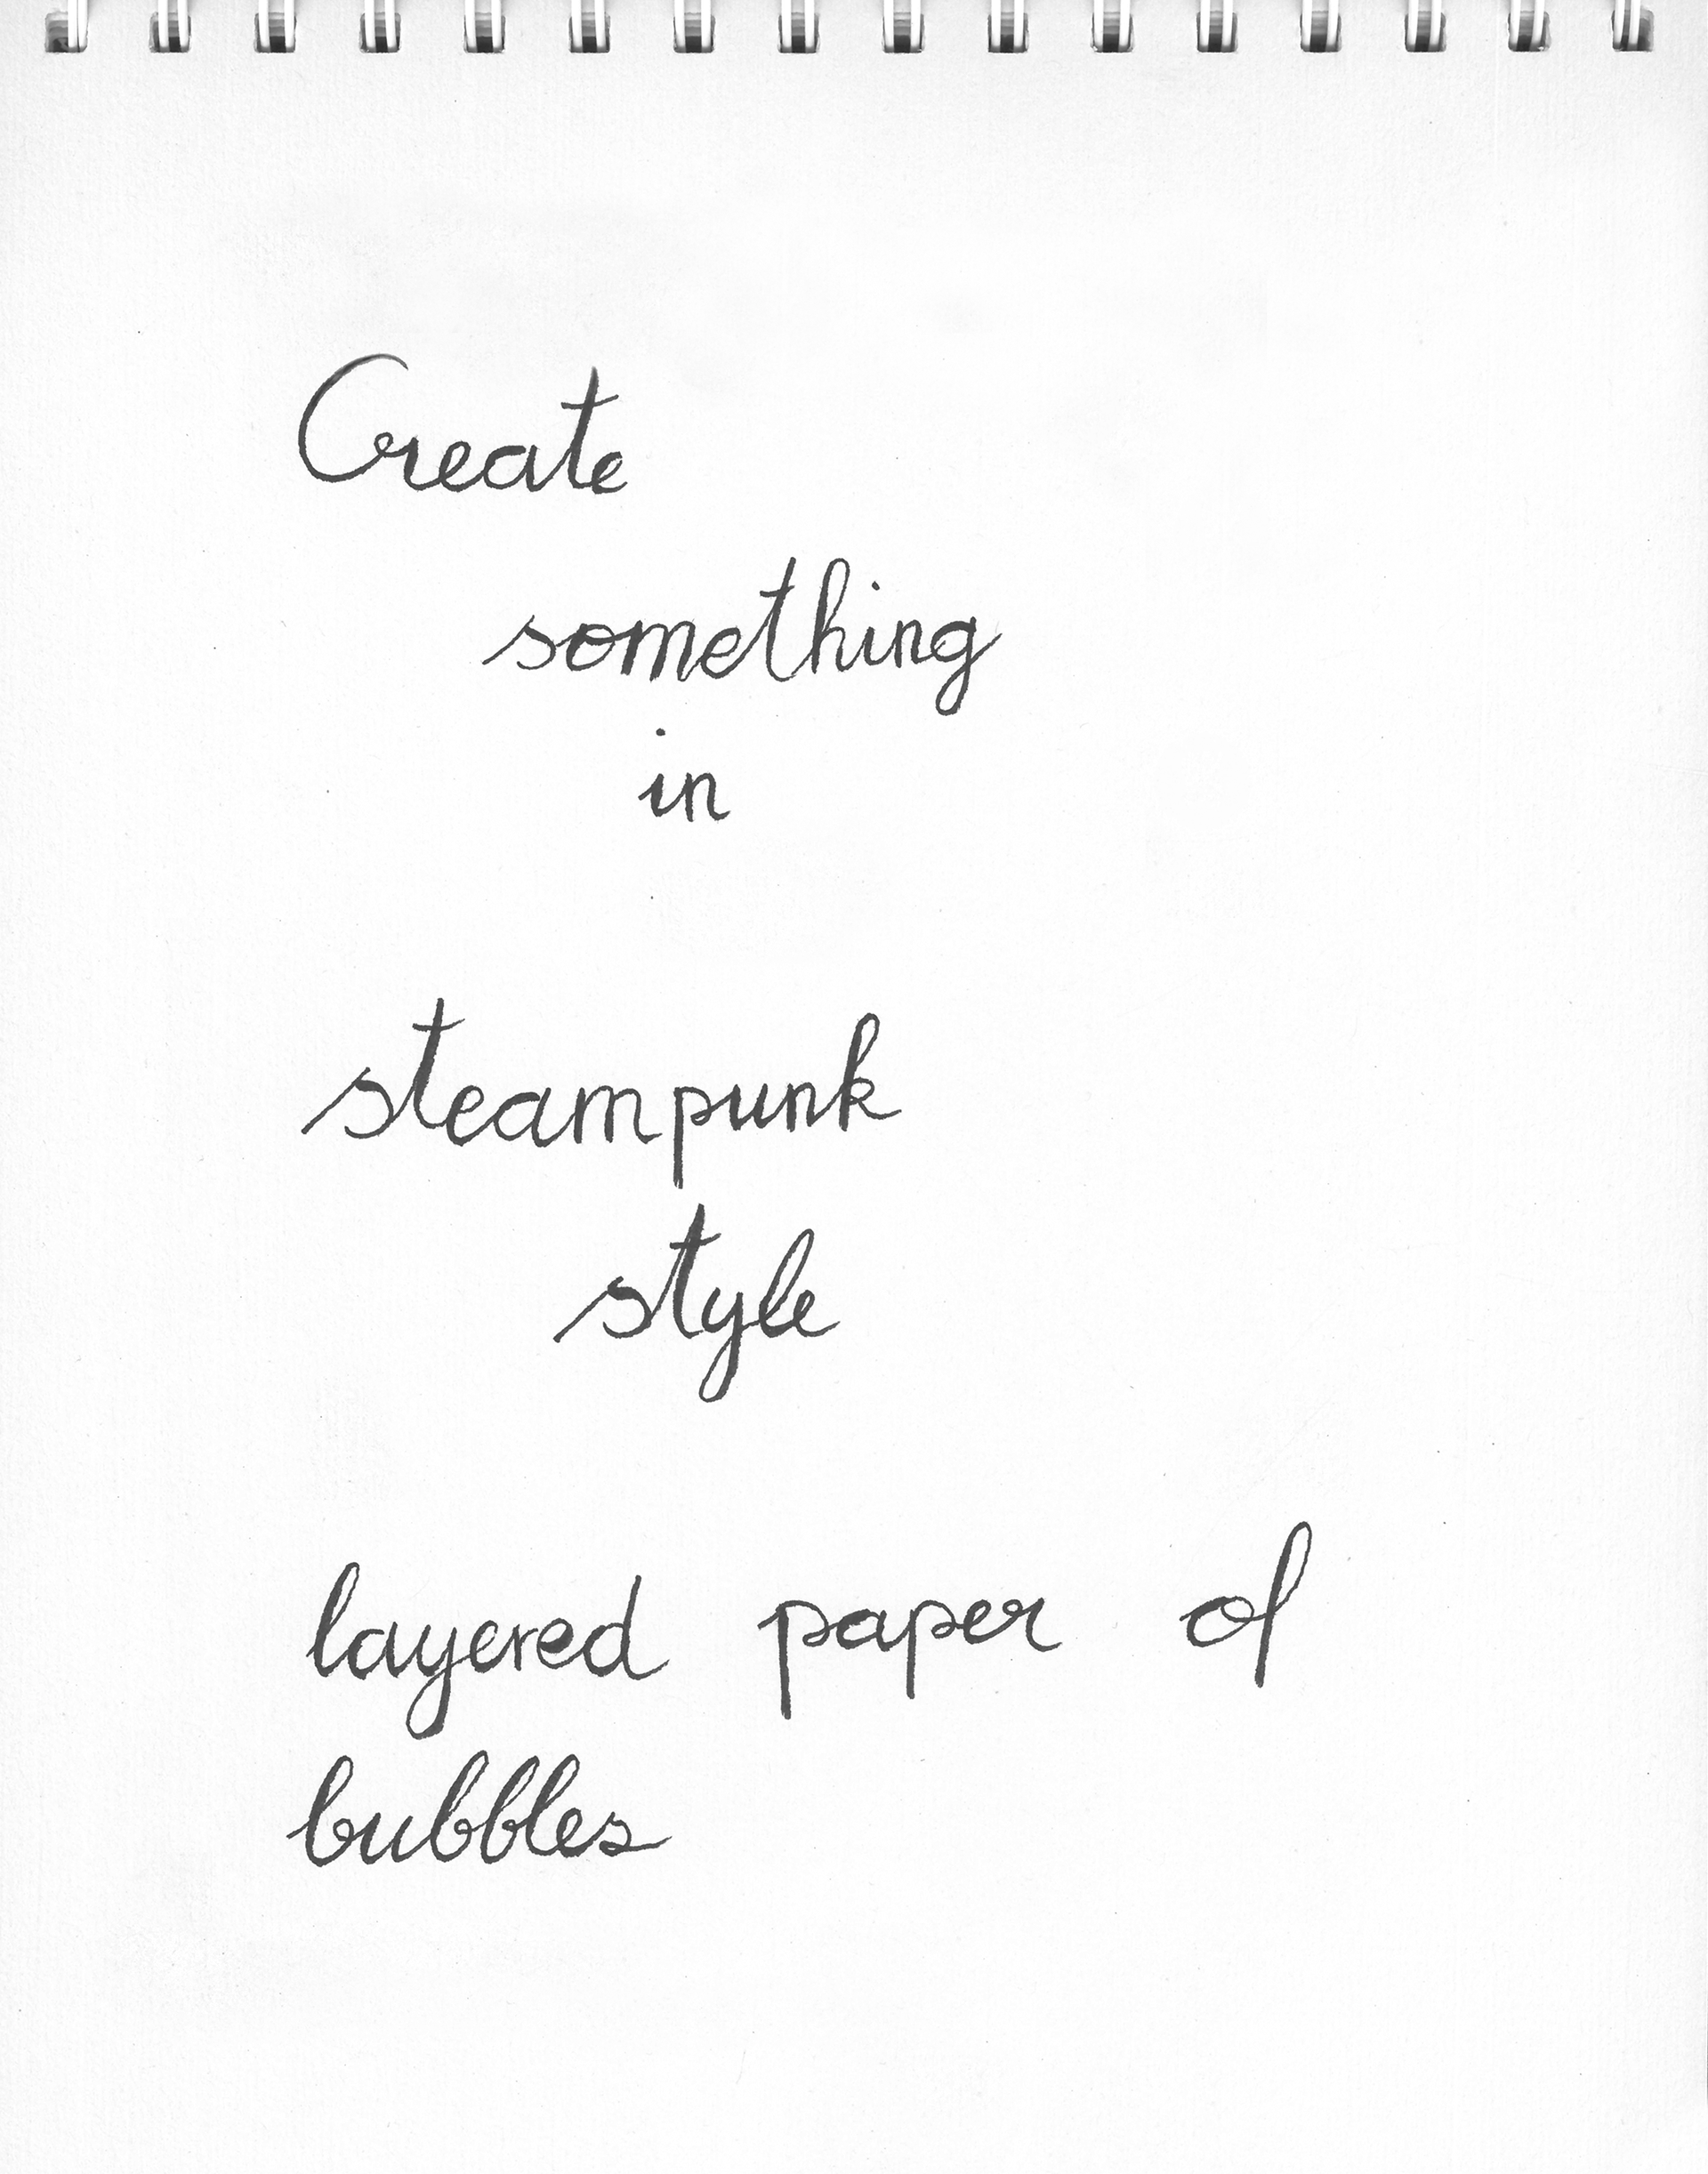 Create
something
in
steampunk
style
layered paper of
bubbles